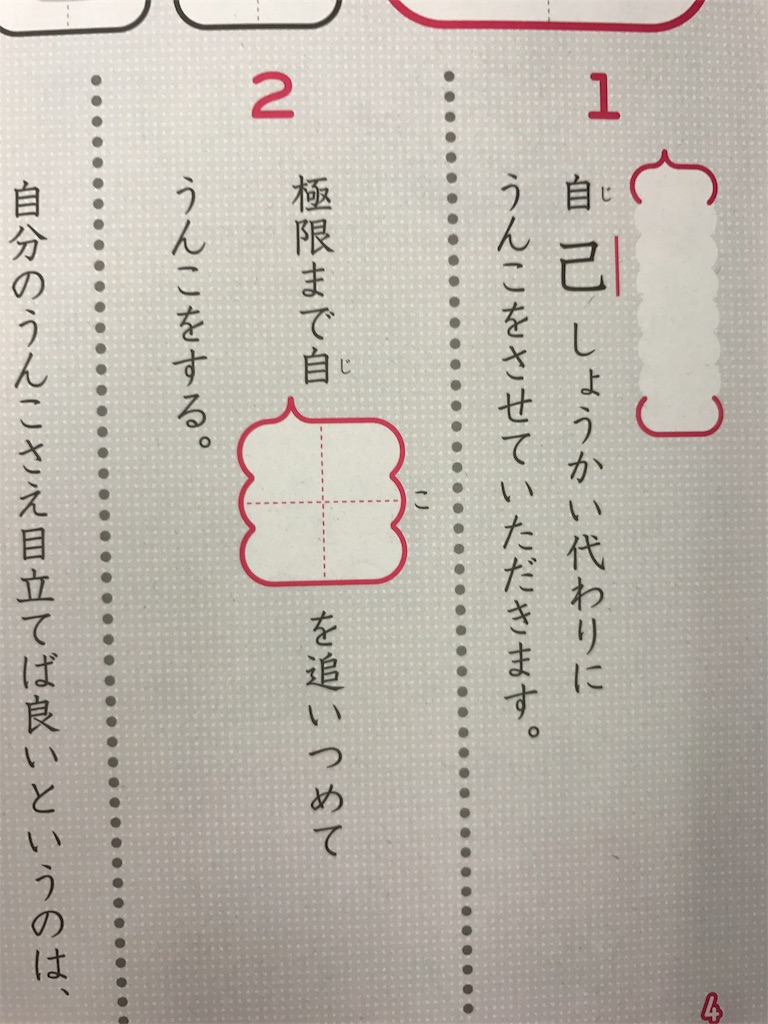 1
じ
自己しょうかい代わりに
うんこをさせていただきます。
2
じ こ
極限まで自を追いつめて
うんこをする。
自分のうんこさえ目立てば良いというのは、
4